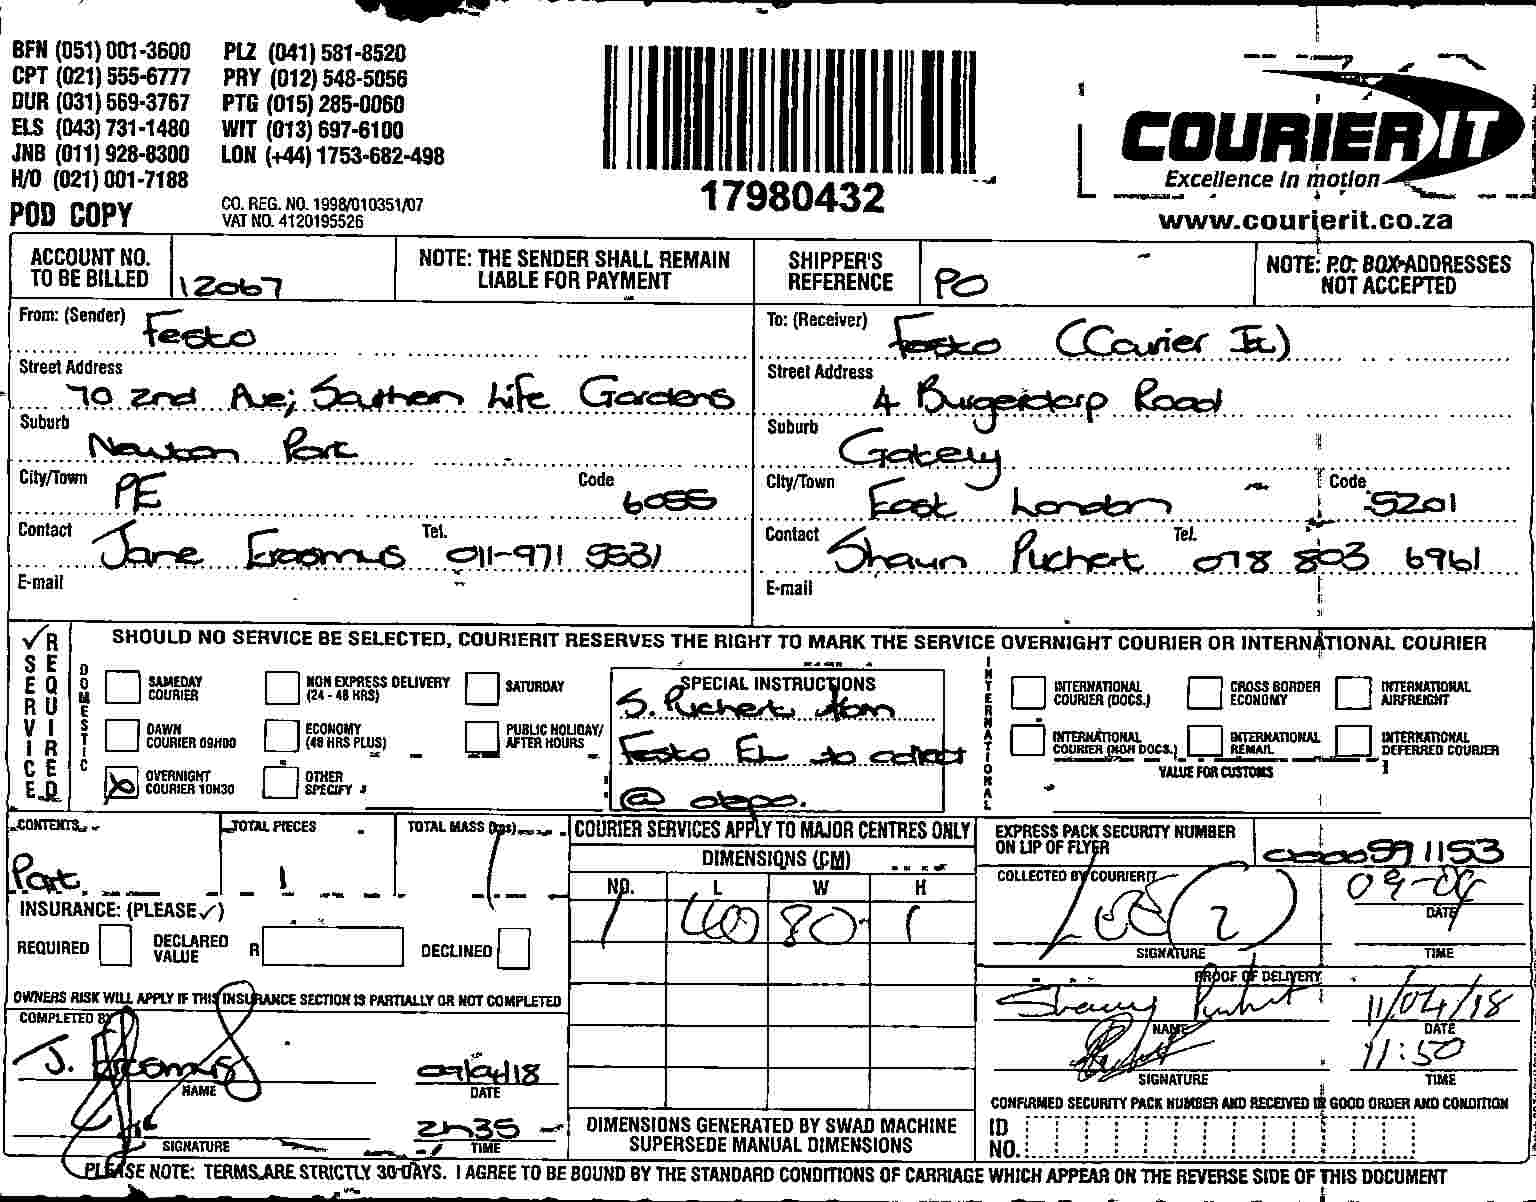 BFN (051) 001-3600 PLZ (041) 581-8520
CPT (021) 555-6777 PRY (012) 548-5056
DUR (031) 569-3767 PTG (015) 285-0060
ELS (043) 731-1480 WIT (013) 697-6100
JNB (011) 928-8300 LON (+44) 1753-682-498
H/O (021) 001-7188
POD COPY
CO. REG. NO. 1998/010351/07
VAT NO. 4120195526
17980432
COURIER IT
Excellence in motion
www.courierit.co.za
ACCOUNT NO. TO BE BILLED 12067
NOTE: THE SENDER SHALL REMAIN LIABLE FOR PAYMENT
SHIPPER'S REFERENCE PO
NOTE: P.O. BOX ADDRESSES NOT ACCEPTED
From: (Sender) Festo
Street Address 70 2nd Ave; Southern Life Gardens
Suburb Newton Park
City/Town PE Code 6055
Contact Jane Erasmus Tel. 011-971 5531
E-mail
To: (Receiver) Festo (Courier It)
Street Address 4 Burgersdorp Road
Suburb Gately
City/Town East London Code 5201
Contact Shaun Puchert Tel. 078 803 6961
E-mail
✓ SERVICE REQUIRED
SHOULD NO SERVICE BE SELECTED, COURIERIT RESERVES THE RIGHT TO MARK THE SERVICE OVERNIGHT COURIER OR INTERNATIONAL COURIER
DOMESTIC
SAMEDAY COURIER
NON EXPRESS DELIVERY (24 - 48 HRS)
SATURDAY
DAWN COURIER 09H00
ECONOMY (48 HRS PLUS)
PUBLIC HOLIDAY/ AFTER HOURS
OVERNIGHT COURIER 10H30
OTHER SPECIFY
SPECIAL INSTRUCTIONS
S. Puchert from
Festo EL to collect
@ depo.
INTERNATIONAL
INTERNATIONAL COURIER (DOCS.)
CROSS BORDER ECONOMY
INTERNATIONAL AIRFREIGHT
INTERNATIONAL COURIER (NON DOCS.)
INTERNATIONAL REMAIL
INTERNATIONAL DEFERRED COURIER
VALUE FOR CUSTOMS
CONTENTS Part
TOTAL PIECES 1
TOTAL MASS (kgs) 1
INSURANCE: (PLEASE ✓)
REQUIRED DECLARED VALUE R DECLINED
OWNERS RISK WILL APPLY IF THIS INSURANCE SECTION IS PARTIALLY OR NOT COMPLETED
COMPLETED BY
J. Erasmus 09/04/18
NAME DATE
2h35
SIGNATURE TIME
COURIER SERVICES APPLY TO MAJOR CENTRES ONLY
DIMENSIONS (CM)
NO. L W H
1 40 80 1
DIMENSIONS GENERATED BY SWAD MACHINE SUPERSEDE MANUAL DIMENSIONS
EXPRESS PACK SECURITY NUMBER ON LIP OF FLYER 0000591153
COLLECTED BY COURIERIT
09-04
DATE
SIGNATURE TIME
PROOF OF DELIVERY
Shaun Puchert 11/04/18
NAME DATE
11:50
SIGNATURE TIME
CONFIRMED SECURITY PACK NUMBER AND RECEIVED IN GOOD ORDER AND CONDITION
ID NO.
PLEASE NOTE: TERMS ARE STRICTLY 30 DAYS. I AGREE TO BE BOUND BY THE STANDARD CONDITIONS OF CARRIAGE WHICH APPEAR ON THE REVERSE SIDE OF THIS DOCUMENT